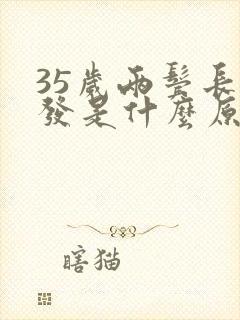 35歲兩鬢長
發是什麼原
瞎猫